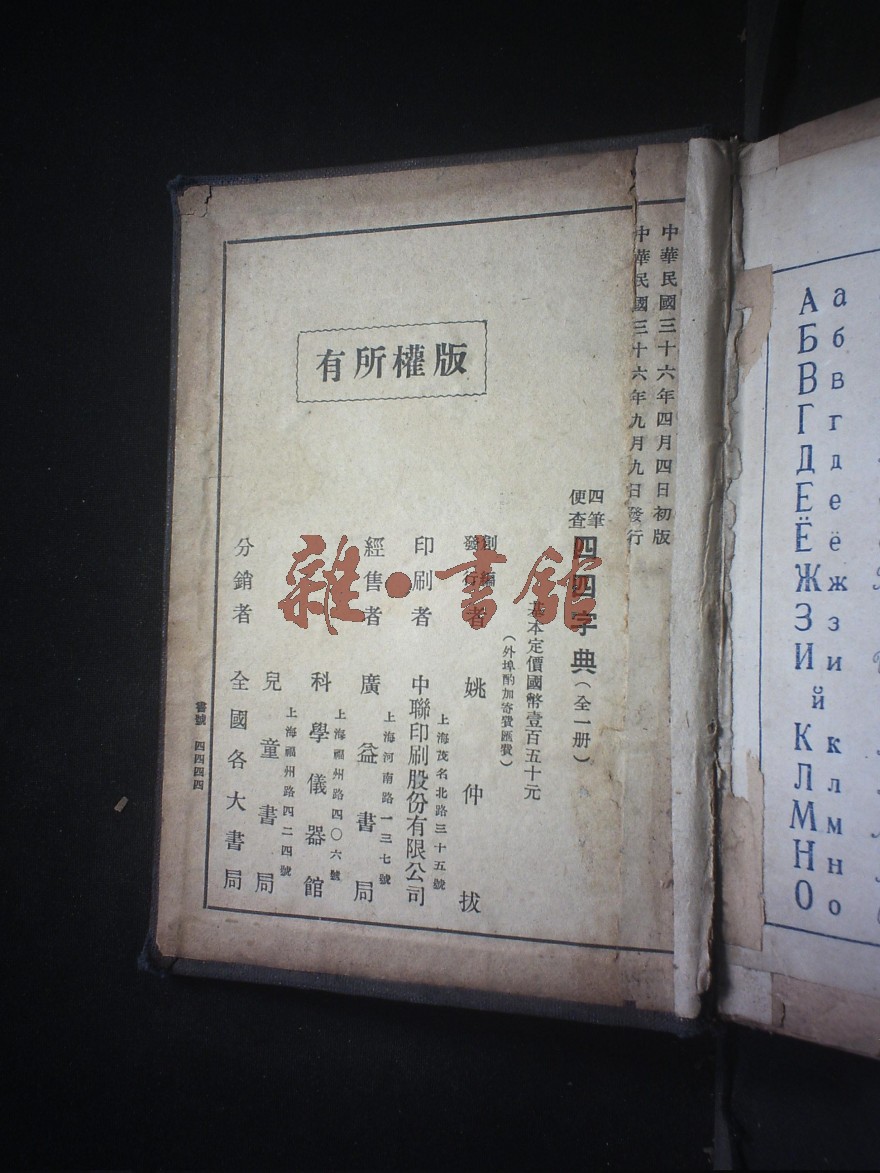 中華民國三十六年四月四日初版
中華民國三十六年九月九日發行
四筆
便查
四四字典(全一册)
基本定價國幣壹百五十元
(外埠酌加寄費匯費)
創編
發行者 姚仲拔
印刷者 中聯印刷股份有限公司
上海茂名北路三十五號
經售者 廣益書局
上海河南路一三七號
科學儀器館
上海福州路四〇六號
兒童書局
上海福州路四二四號
分銷者 全國各大書局
書號 四四四四
版權所有
雜·書館
А а
Б б
В в
Г г
Д д
Е е
Ё ё
Ж ж
З з
И и
й
К к
Л л
М м
Н н
О о